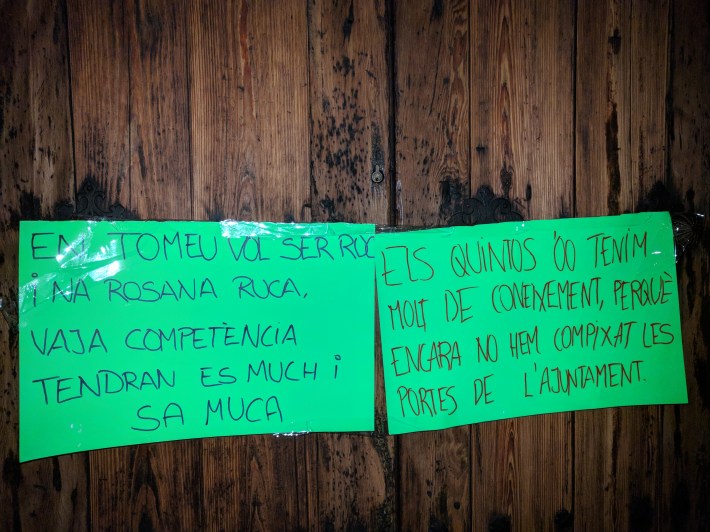 EN TOMEU VOL SER RUC
i NA ROSANA RUCA,
VAJA COMPETÈNCIA
TENDRAN ES MUCH i
SA MUCA
ELS QUINTOS '00 TENIM
MOLT DE CONEIXEMENT, PERQUÈ
ENCARA NO HEM COMPIXAT LES
PORTES DE L'AJUNTAMENT.